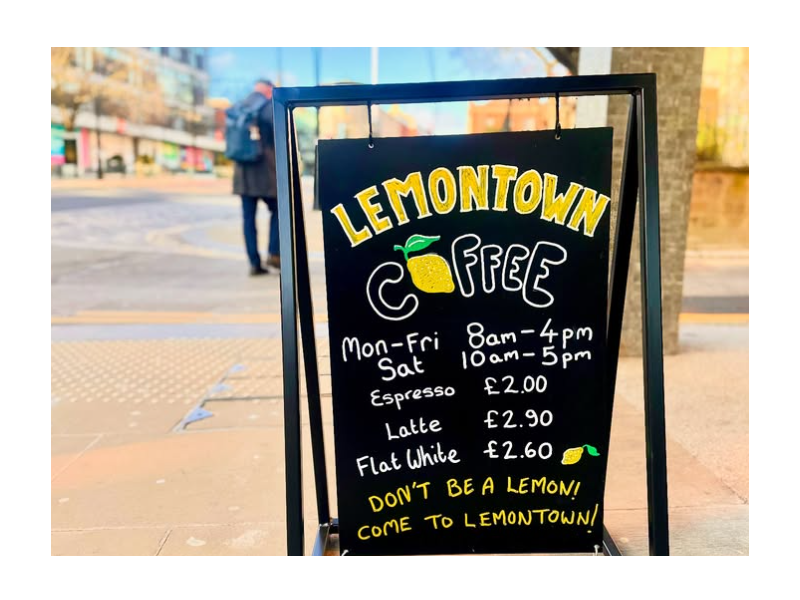 LEMONTOWN
COFFEE
Mon-Fri 8am-4pm
Sat 10am-5pm
Espresso £2.00
Latte £2.90
Flat White £2.60
DON'T BE A LEMON!
COME TO LEMONTOWN!